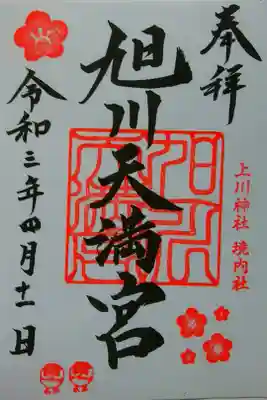 奉拝
上川神社 境内社
旭川天満宮
令和三年四月十一日